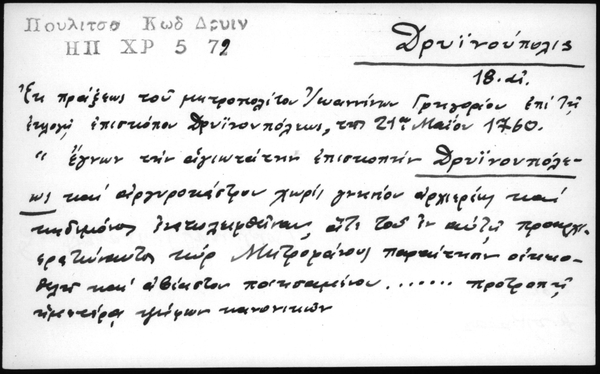 Πουλιτσα Κωδ Δρυιν
ΗΠ ΧΡ 5 72
Δρυϊνούπολις
18. αἰ.
Ἐκ πράξεως τοῦ μητροπολίτου Ἰωαννίνων Γρηγορίου ἐπὶ τῇ
ἐκλογῇ ἐπισκόπου Δρυϊνουπόλεως, τῇ 21ῃ Μαΐου 1760.
" ἔγνων τὴν ἁγιωτάτην ἐπισκοπὴν Δρυϊνουπόλε-
ως καὶ Ἀργυροκάστρου χωρὶς γνησίου ἀρχιερέως καὶ
κηδεμόνος ἐναπολειφθεῖσαν, ἅτε τοῦ ἐν αὐτῇ προαρχι-
ερατεύσαντος κὺρ Μητροφάνους παραίτησιν οἰκειο-
θελῆ καὶ ἀβίαστον ποιησαμένου ....... προτροπῇ
ἡμετέρᾳ ψήφων κανονικῶν